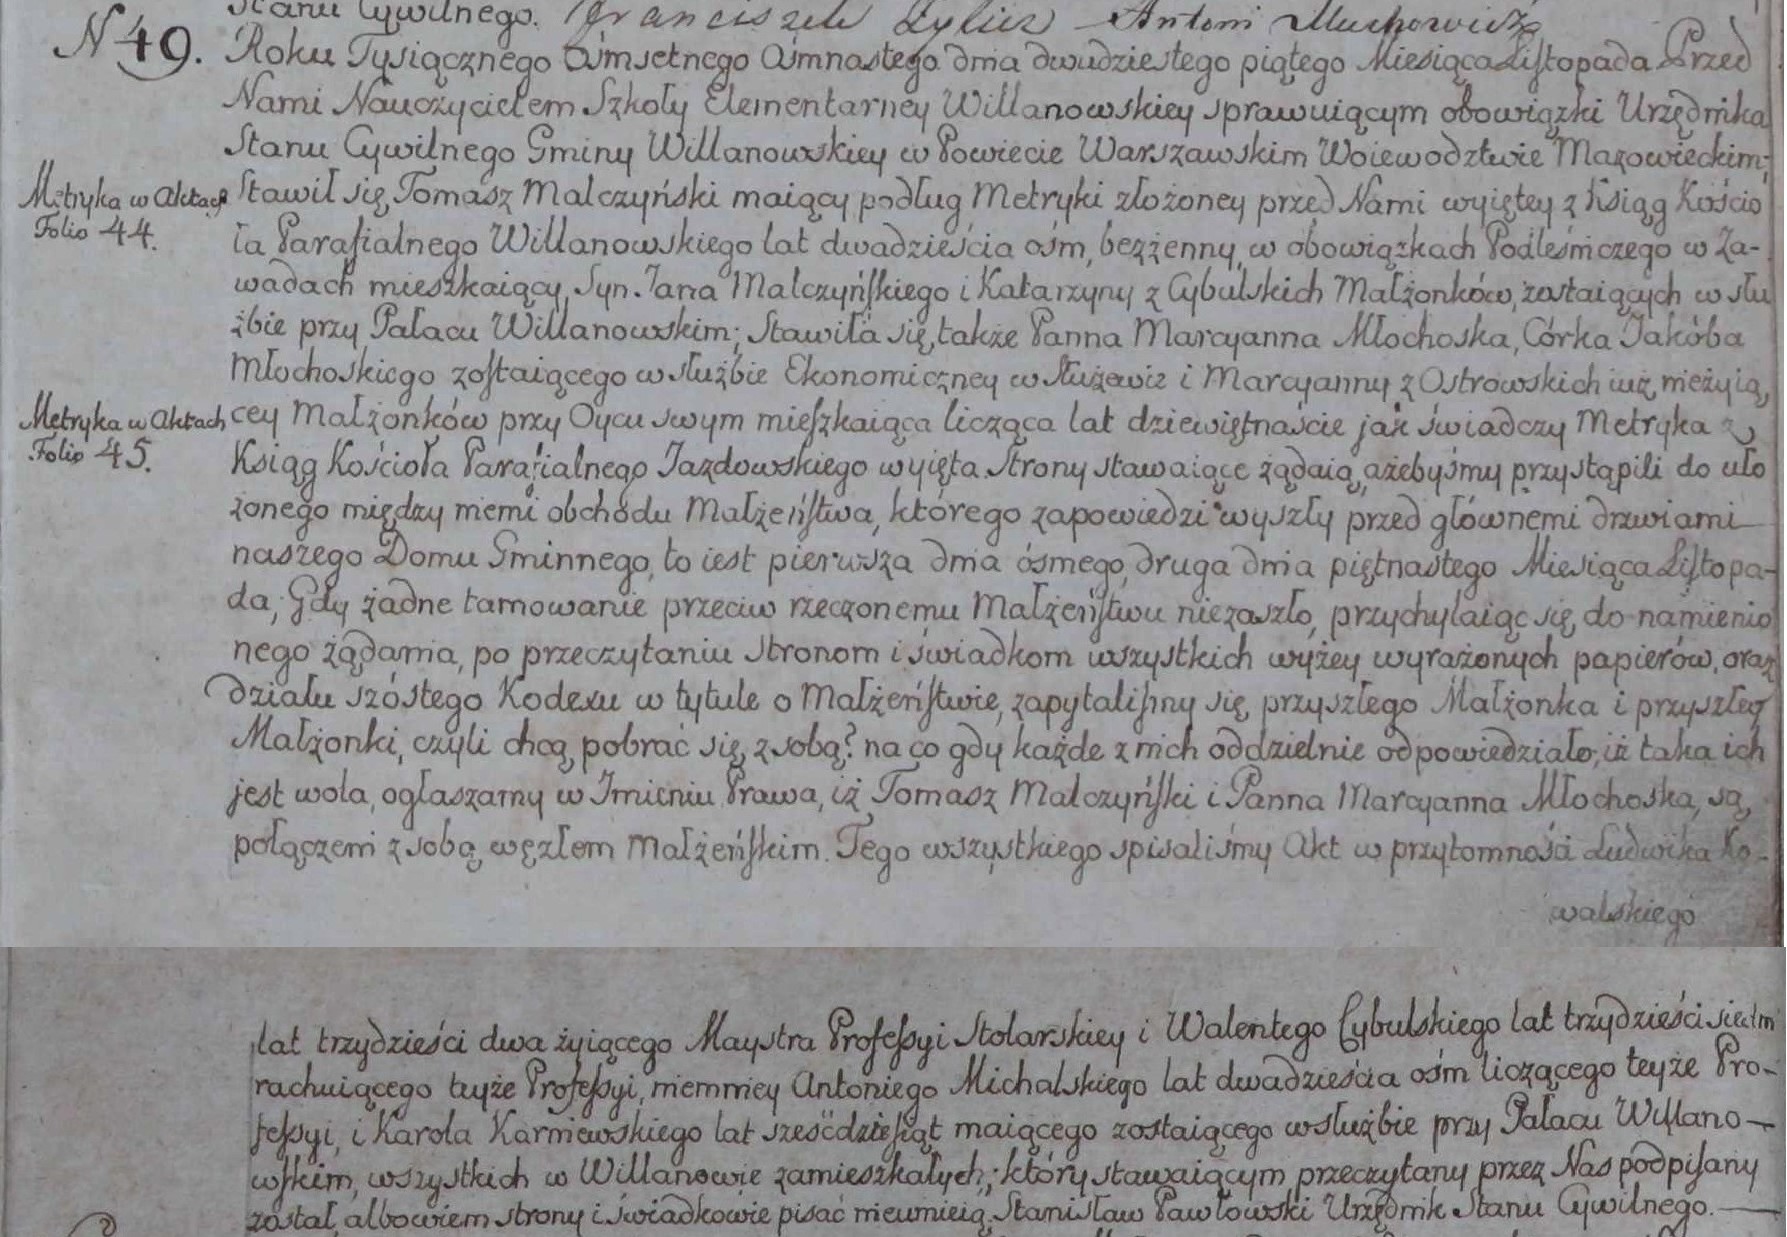 Stanu Cywilnego. Franciszek Antoni Muchowicz
N 49. Roku Tysiącznego Osmsetnego Osmnastego dnia dwudziestego piątego Miesiąca Listopada Przed
Nami Nauczycielem Szkoły Elementarney Willanowskiey sprawuiącym obowiązki Urzędnika
Stanu Cywilnego Gminy Willanowskiey w Powiecie Warszawskim Woiewodztwie Mazowieckim;
Metryka w Aktach Stawił się Tomasz Malczyński maiący podług Metryki złożoney przed Nami wyiętey z Ksiąg Kościo
Folio 44. ła Parafialnego Willanowskiego lat dwadzieścia ośm, bezżenny, w obowiązkach Podleśniczego w Za-
wadach mieszkaiący, Syn Jana Malczyńskiego i Katarzyny z Cybulskich Małżonków, zostaiących w słu
żbie przy Pałacu Willanowskim; Stawiła się także Panna Marcyanna Młochoska, Córka Jakóba
Młochoskiego zostaiącego w służbie Ekonomiczney w Służewie i Marcyanny z Ostrowskich iuż nieżyią,
Metryka w Aktach cey Małżonków przy Oycu swym mieszkaiąca licząca lat dziewiętnaście jak świadczy Metryka z
Folio 45. Ksiąg Kościoła Parafialnego Jazdowskiego wyięta. Strony stawaiące żądaią, ażebyśmy przystąpili do uło
żonego między niemi obchodu Małżeństwa, którego zapowiedzi wyszły przed głównemi drzwiami
naszego Domu Gminnego, to iest pierwsza dnia ósmego, druga dnia piętnastego Miesiąca Listopa-
da; Gdy żadne tamowanie przeciw rzeczonemu Małżeństwu niezaszło, przychylaiąc się do namienio
nego żądania, po przeczytaniu stronom i świadkom wszystkich wyżey wyrażonych papierów, oraz
działu szóstego Kodexu w tytule o Małżeństwie, zapytaliśmy się przyszłego Małżonka i przyszłey
Małżonki, czyli chcą pobrać się z sobą? na co gdy każde z nich oddzielnie odpowiedziało, iż taka ich
jest wola, ogłaszamy w Imieniu Prawa, iż Tomasz Malczyński i Panna Marcyanna Młochoska, są,
połączeni z sobą węzłem Małżeńskim. Tego wszystkiego spisaliśmy Akt w przytomności Ludwika Ko-
walskiego
lat trzydzieści dwa żyiącego Maystra Professyi Stolarskiey i Walentego Cybulskiego lat trzydzieści siedm
rachuiącego teyże Professyi, niemniey Antoniego Michalskiego lat dwadzieścia ośm liczącego teyże Pro-
fessyi, i Karola Karniewskiego lat sześćdziesiąt maiącego zostaiącego w służbie przy Pałacu Willano-
wskim, wszystkich w Willanowie zamieszkałych; który stawaiącym przeczytany przez Nas podpisany
został, albowiem strony i świadkowie pisać nieumieią. Stanisław Pawłowski Urzędnik Stanu Cywilnego.